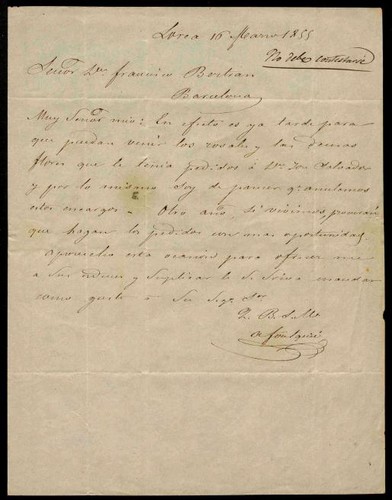 Lorca 16 Marzo 1855
No debe contestarse
Señor Dn. Francisco Bertran
Barcelona
Muy Señor mio: En efecto es ya tarde para
que puedan venir los rosales y las demas
flores que le tenia pedidos á Dn. José Salvador
y por lo mismo soy de parecer
estos encargos. Otro año, si vivimos,
que hagan los pedidos con mas oportunidad.
Aprovecho esta ocasion para ofrecerme
a sus ordenes y suplicarle se sirva mandar
como guste a Su Sego. Sor.
Q. B. S. M.